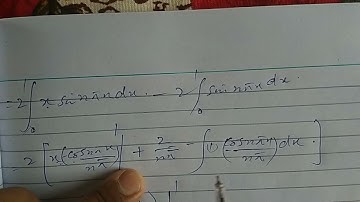 = 2 ∫₀¹ x sin nπx dx - 2 ∫₀¹ sin nπx dx.
2 [ x(-cos nπx / nπ) |¹ + 2/nπ - ∫ (1) (cos nπx / nπ) dx. ]